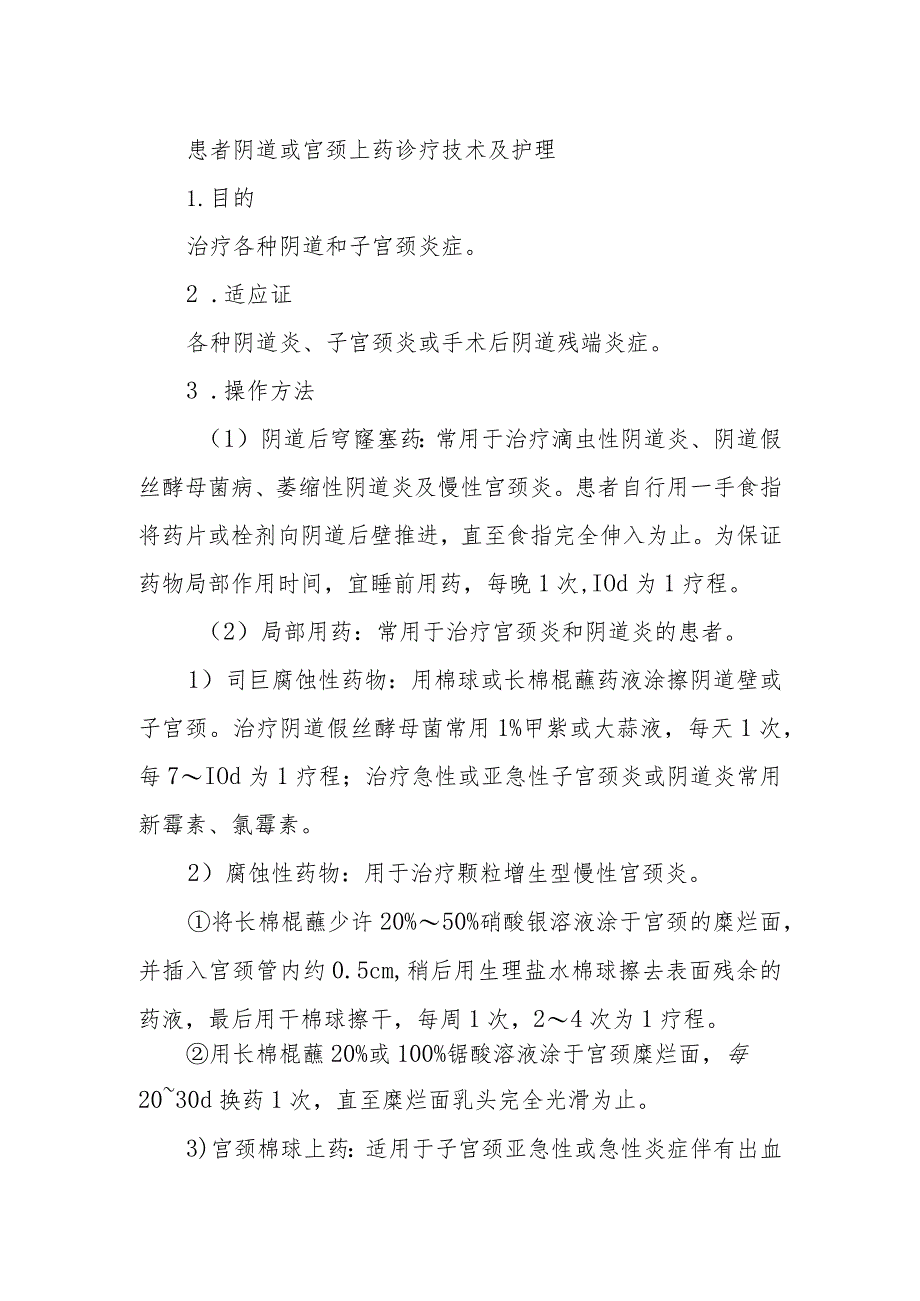 患者阴道或宫颈上药诊疗技术及护理
1.目的
治疗各种阴道和子宫颈炎症。
2 .适应证
各种阴道炎、子宫颈炎或手术后阴道残端炎症。
3 .操作方法
（1）阴道后穹窿塞药：常用于治疗滴虫性阴道炎、阴道假
丝酵母菌病、萎缩性阴道炎及慢性宫颈炎。患者自行用一手食指
将药片或栓剂向阴道后壁推进，直至食指完全伸入为止。为保证
药物局部作用时间，宜睡前用药，每晚1次,IOd为1疗程。
（2）局部用药：常用于治疗宫颈炎和阴道炎的患者。
1）司巨腐蚀性药物：用棉球或长棉棍蘸药液涂擦阴道壁或
子宫颈。治疗阴道假丝酵母菌常用1%甲紫或大蒜液，每天1次，
每7～IOd为1疗程；治疗急性或亚急性子宫颈炎或阴道炎常用
新霉素、氯霉素。
2）腐蚀性药物：用于治疗颗粒增生型慢性宫颈炎。
①将长棉棍蘸少许20%～50%硝酸银溶液涂于宫颈的糜烂面，
并插入宫颈管内约0.5cm,稍后用生理盐水棉球擦去表面残余的
药液，最后用干棉球擦干，每周1次，2～4次为1疗程。
②用长棉棍蘸20%或100%锯酸溶液涂于宫颈糜烂面，每
20~30d换药1次，直至糜烂面乳头完全光滑为止。
3)宫颈棉球上药：适用于子宫颈亚急性或急性炎症伴有出血